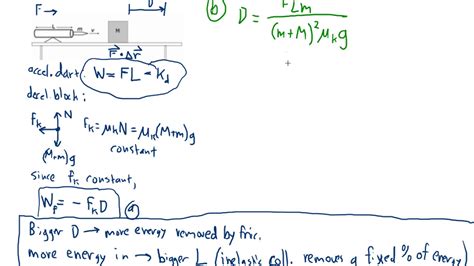 F → D
m v M
F⃗ · Δr⃗
accel. dart: W = FL = K_d
decel. block:
F_k N F_k = μ_k N = μ_k (M+m) g
(M+m)g constant
since f_k constant,
W_f = - F_k D (a)
Bigger D → more energy removed by fric.
more energy in → bigger L (inelastic coll. removes a fixed % of energy)
(b) D = FLm / (m+M)² μ_k g